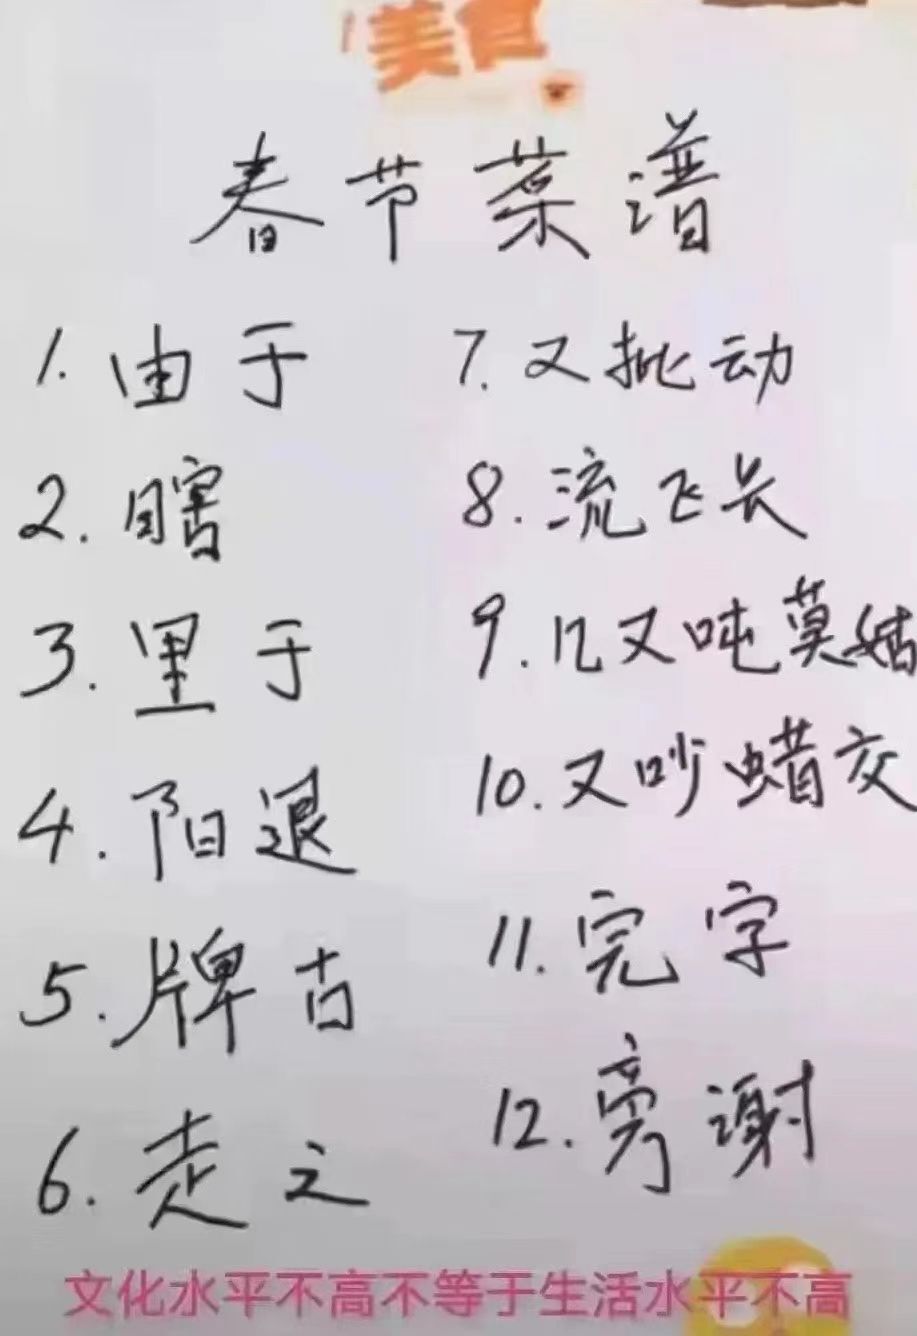 美食
春节菜谱
1. 由于
2. 瞎
3. 里于
4. 阳退
5. 牌古
6. 走之
7. 又批动
8. 流飞长
9. 几又吨莫姑
10. 又吵蜡交
11. 完字
12. 旁谢
文化水平不高不等于生活水平不高